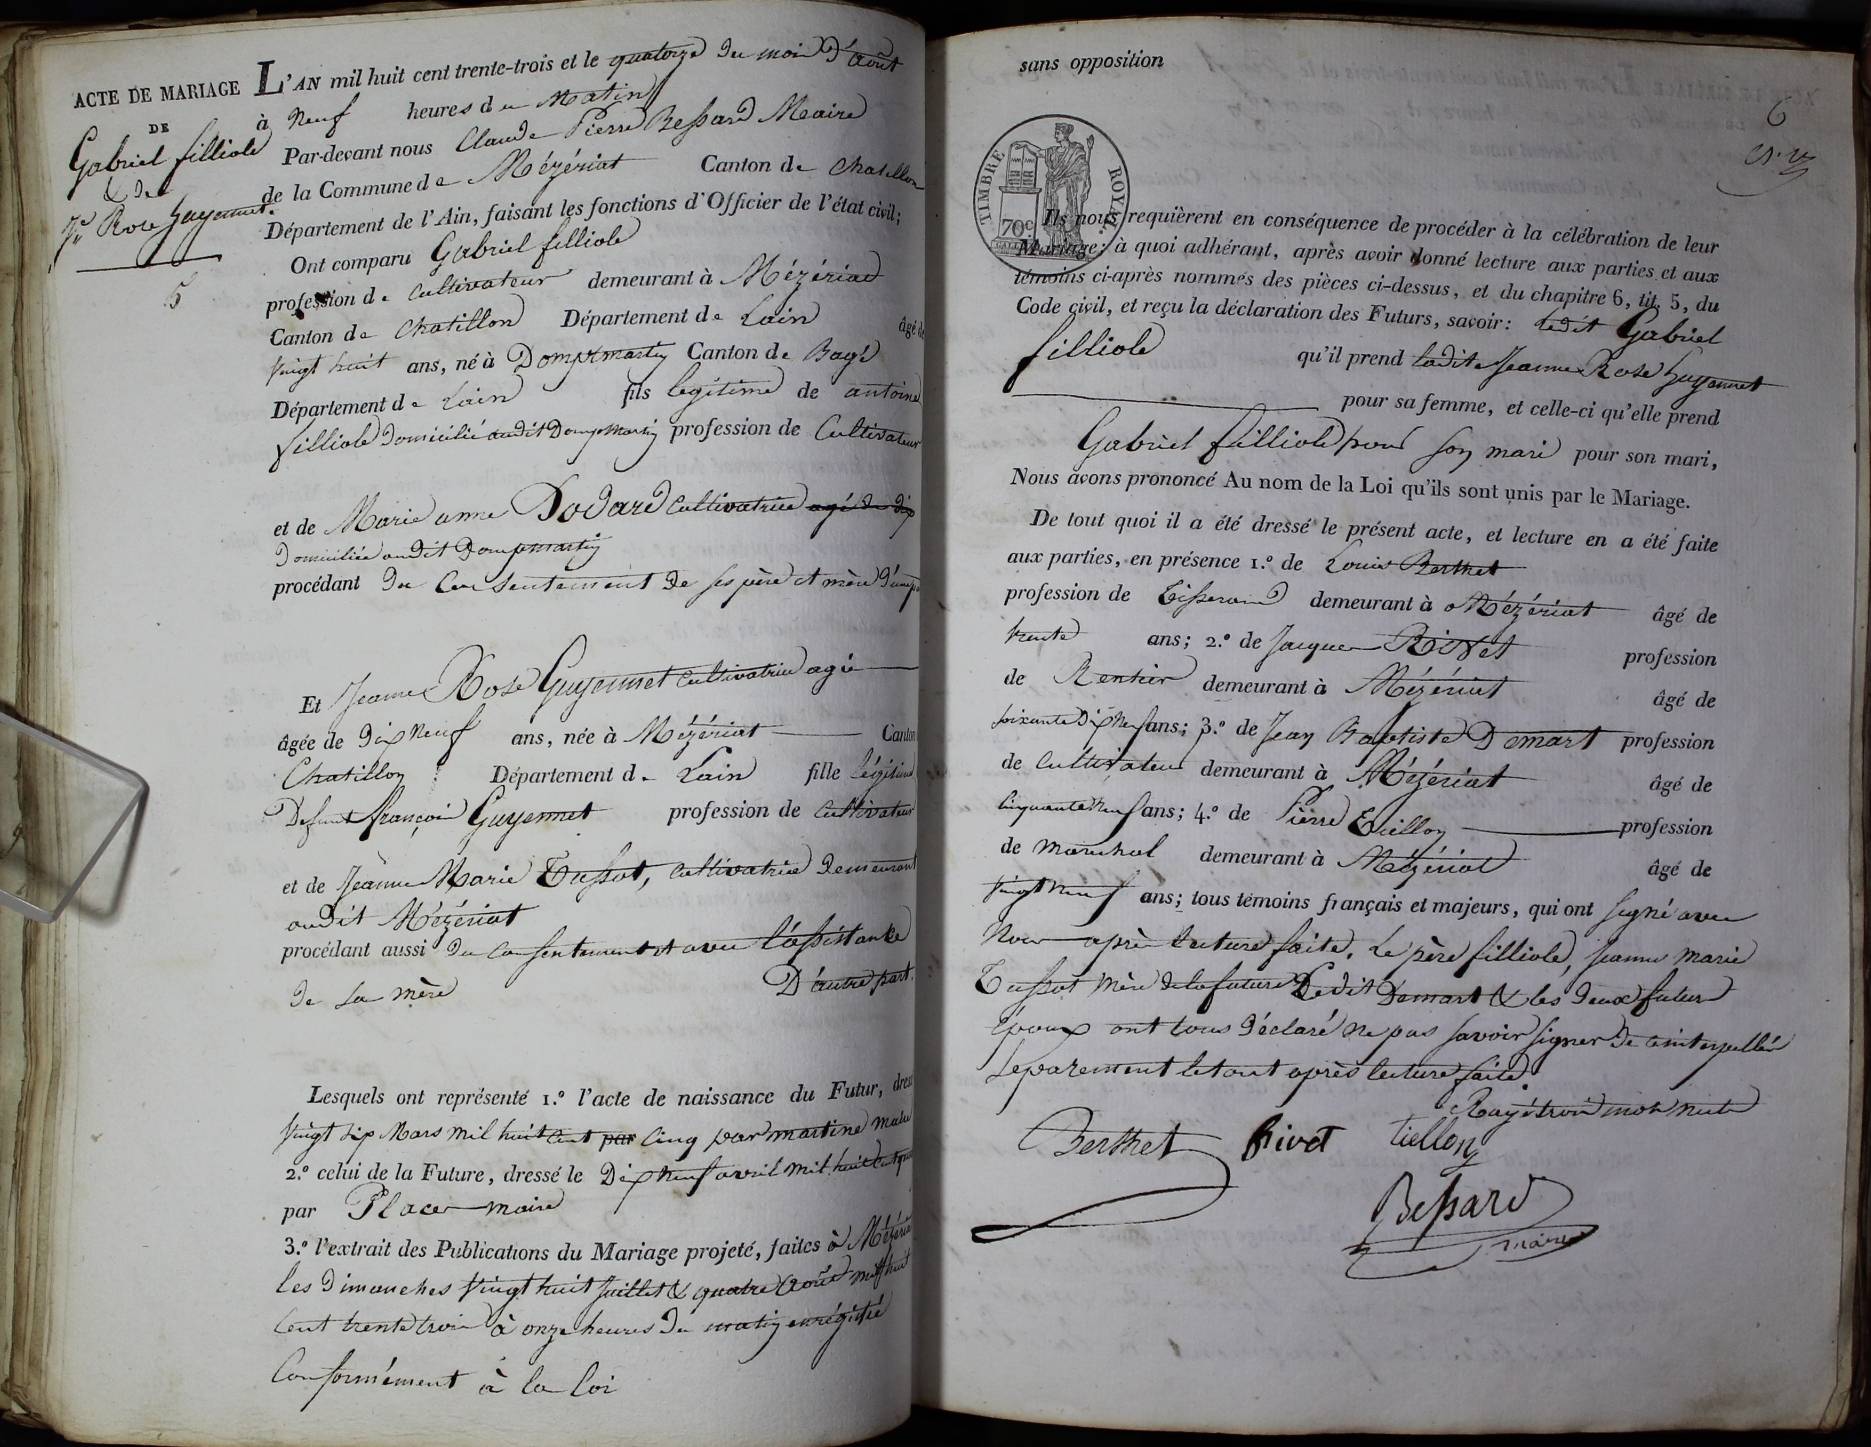 ACTE DE MARIAGE
DE
Gabriel filliole
& de
Jne Rose Guyennet.
5
L'AN mil huit cent trente-trois et le quatorze du mois D'août
à Neuf heures du Matin
Par-devant nous Claude Pierre Bessard Maire
de la Commune de Mézériat Canton de Chatillon
Département de l'Ain, faisant les fonctions d'Officier de l'état civil;
Ont comparu Gabriel filliole
profession de Cultivateur demeurant à Mézériat
Canton de Chatillon Département de Lain âgé de
Vingt huit ans, né à Dompmartin Canton de Bagé
Département de Lain fils légitime de antoine
filliole Domicilié audit Dompmartin profession de Cultivateur
et de Marie anne Dodard Cultivatrice agé de dix
Domiciliée audit Dompmartin
procédant du Consentement de ses père et mère D'une p
Et Jeanne Rose Guyennet Cultivatrice agée
âgée de Dix Neuf ans, née à Mézériat Canton
Chatillon Département de Lain fille légitime
Defunt françois Guyennet profession de Cultivateur
et de Jeanne Marie Tussot, Cultivatrice Demeurant
audit Mézériat
procédant aussi du Consentement et avec l'assistance
de sa mère D'autre part.
Lesquels ont représenté 1.º l'acte de naissance du Futur, dres
Vingt six Mars mil huit Cent par Cinq par martine maire
2.º celui de la Future, dressé le Dix neuf avril mil huit Cent qua
par Place maire
3.º l'extrait des Publications du Mariage projeté, faites à Mézéria
les Dimanches Vingt huit Juillet & quatre Août mil huit
Cent trente trois à onze heures du matin enrégistré
Conformément à la loi
sans opposition
6
TIMBRE ROYAL
70c
Ils nous requièrent en conséquence de procéder à la célébration de leur
Mariage; à quoi adhérant, après avoir donné lecture aux parties et aux
témoins ci-après nommés des pièces ci-dessus, et du chapitre 6, tit. 5, du
Code civil, et reçu la déclaration des Futurs, savoir: Ledit Gabriel
filliole qu'il prend ladite Jeanne Rose Guyennet
pour sa femme, et celle-ci qu'elle prend
Gabriel filliole pour son mari pour son mari,
Nous avons prononcé Au nom de la Loi qu'ils sont unis par le Mariage.
De tout quoi il a été dressé le présent acte, et lecture en a été faite
aux parties, en présence 1.º de Louis Berthet
profession de Tisserand demeurant à Mézériat âgé de
trente ans; 2.º de Jacques Rivet profession
de Rentier demeurant à Mézériat âgé de
soixante Dix Neuf ans; 3.º de Jean Baptiste Demart profession
de Cultivateur demeurant à Mézériat âgé de
Cinquante Neuf ans; 4.º de Pierre Tiellon profession
de Maréchal demeurant à Mézériat âgé de
Vingt neuf ans; tous témoins français et majeurs, qui ont signé avec
Nous après lecture faite. Le père filliole, Jeanne Marie
Tussot Mère de la future Ledit Demart & les deux futurs
époux ont tous déclaré ne pas savoir signer de ce interpellés
séparement le tout après lecture faite.
Rayé trois mots nuls
Berthet Rivet tiellon
Bessard
maire